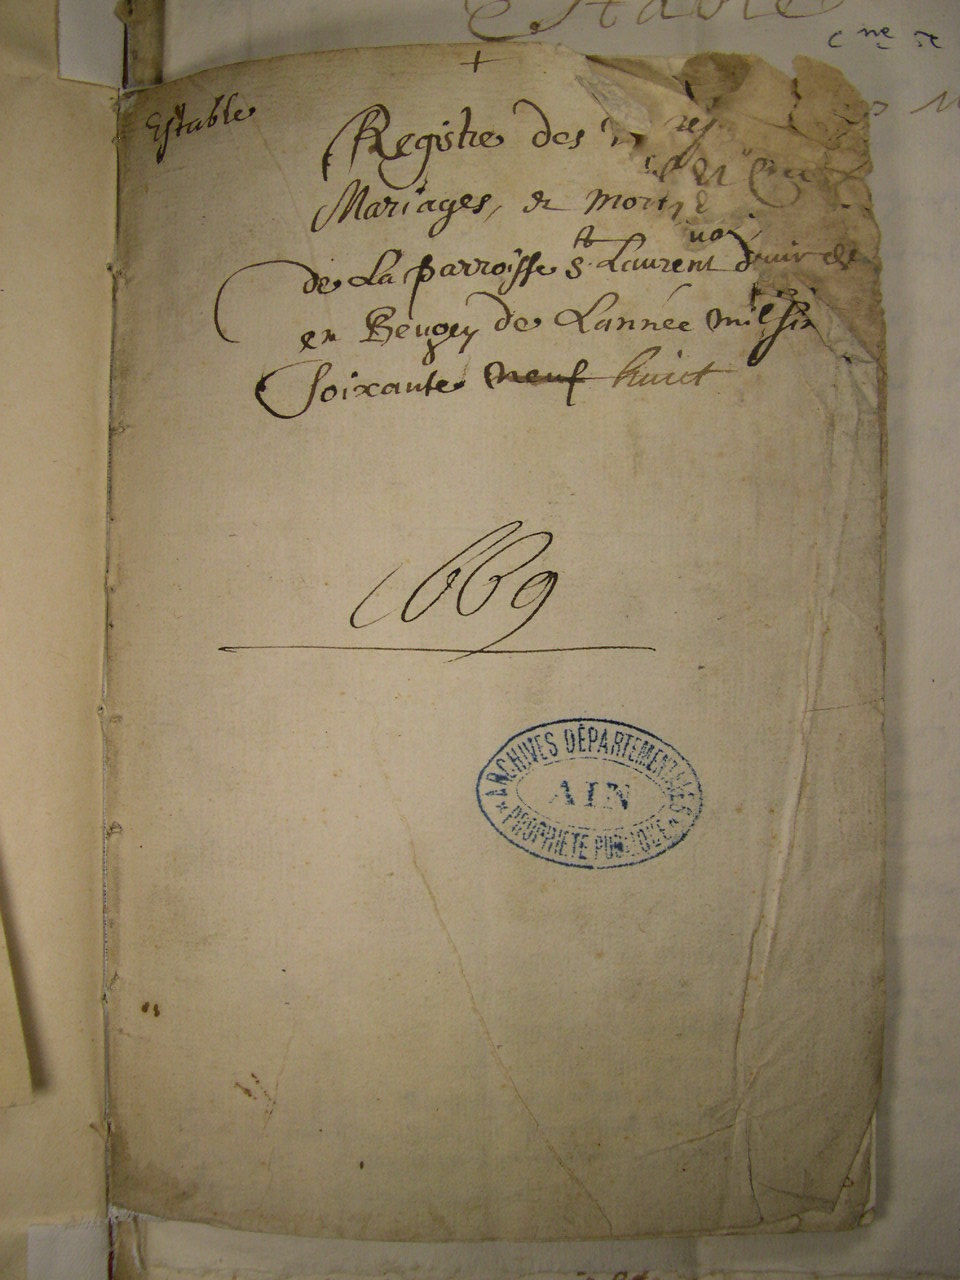 Estable
Registre des
Mariages, et mort
de La parroisse St. Laurent
en Beugey de L'année mil six
soixante neuf huict
1669
ARCHIVES DÉPARTEMENTALES
AIN
PROPRIETE PUBLIQUE